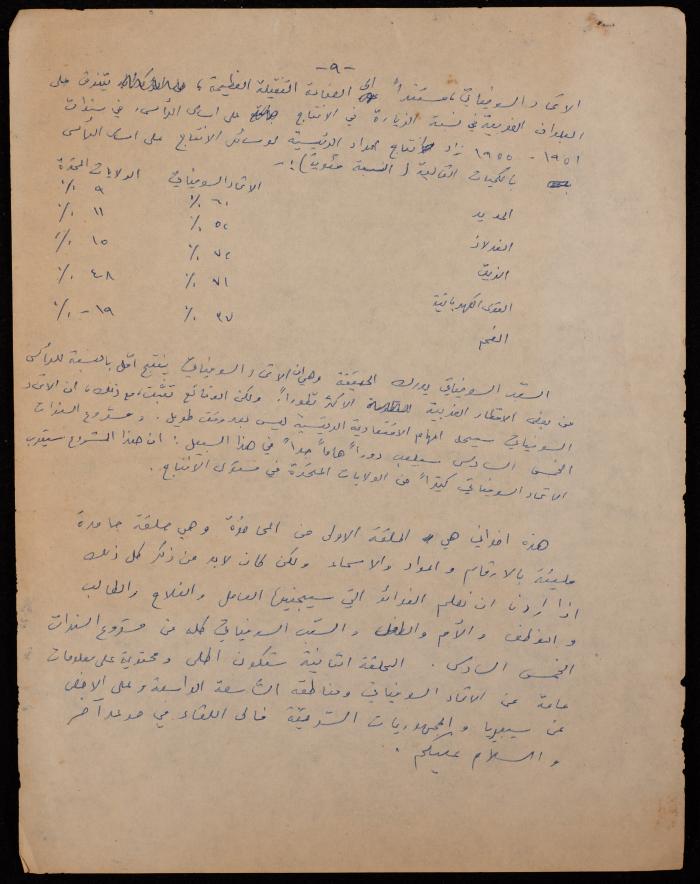 -٩-
الاتحاد السوفياتي، مستنداً الى الصناعة الثقيلة العظيمة، يتفوق على
البلدان الغربية في نسبة الزيادة في الانتاج على اساس الرأس، في سنوات
١٩٥١ - ١٩٥٥ زاد انتاج المواد الرئيسية لوسائل الانتاج على اساس الرأس
بالكميات التالية (النسبة مئوية):-
الاتحاد السوفياتي الولايات المتحدة
الحديد ٦٠ ٪ ٩ ٪
الفولاذ ٥٠ ٪ ١١ ٪
الزيت ٧٠ ٪ ١٥ ٪
القوى الكهربائية ٧١ ٪ ٤٨ ٪
الفحم ٣٧ ٪ ١٩- ٪
الشعب السوفياتي يدرك الحقيقة وهي ان الاتحاد السوفياتي ينتج اقل بالنسبة للرأس
من بعض الاقطار الغربية الاكثر تطوراً. ولكن الوقائع تثبت، مع ذلك، ان الاتحاد
السوفياتي سيحل المهام الاقتصادية الرئيسية ليس بعد وقت طويل. ومشروع السنوات
الخمس السادس سيلعب دوراً هاماً جداً في هذا السبيل: ان هذا المشروع سيقرب
الاتحاد السوفياتي كثيراً من الولايات المتحدة في مستوى الانتاج.
هذه اخواني هي الحلقة الاولى من المحاضرة وهي حلقة جامدة
مليئة بالارقام والمواد والاسماء ولكن كان لابد من ذكر كل ذلك
اذا اردنا ان نعلم الفوائد التي سيجنيها العامل والفلاح والطالب
والموظف والأم والطفل والشعب السوفياتي كله من مشروع السنوات
الخمس السادس. الحلقة الثانية ستكون احلى ومحتوية على معلومات
عامة عن الاتحاد السوفياتي ومناطقه الشاسعة الواسعة وعلى الاخص
عن سيبيريا والجمهوريات الشرقية فالى اللقاء في موعد آخر
والسلام عليكم.